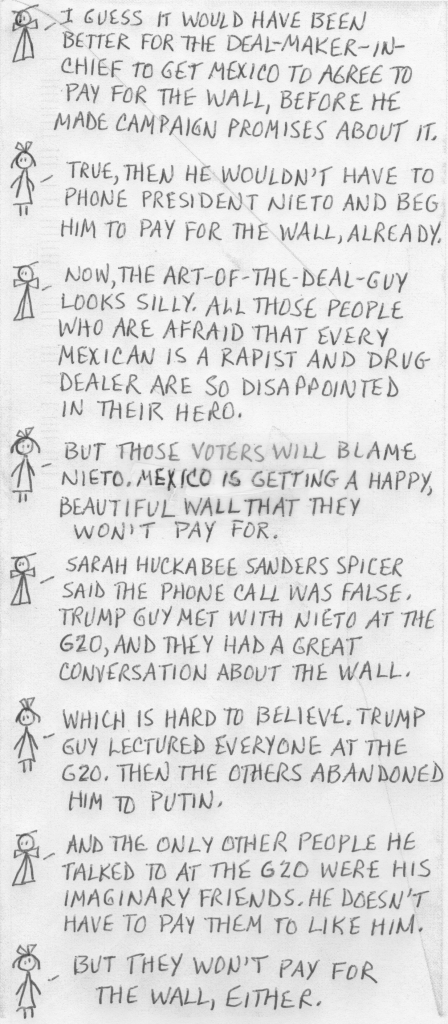 I GUESS IT WOULD HAVE BEEN
BETTER FOR THE DEAL-MAKER-IN-
CHIEF TO GET MEXICO TO AGREE TO
PAY FOR THE WALL, BEFORE HE
MADE CAMPAIGN PROMISES ABOUT IT.
TRUE, THEN HE WOULDN'T HAVE TO
PHONE PRESIDENT NIETO AND BEG
HIM TO PAY FOR THE WALL, ALREADY.
NOW, THE ART-OF-THE-DEAL-GUY
LOOKS SILLY. ALL THOSE PEOPLE
WHO ARE AFRAID THAT EVERY
MEXICAN IS A RAPIST AND DRUG
DEALER ARE SO DISAPPOINTED
IN THEIR HERO.
BUT THOSE VOTERS WILL BLAME
NIETO. MEXICO IS GETTING A HAPPY,
BEAUTIFUL WALL THAT THEY
WON'T PAY FOR.
SARAH HUCKABEE SANDERS SPICER
SAID THE PHONE CALL WAS FALSE.
TRUMP GUY MET WITH NIETO AT THE
G20, AND THEY HAD A GREAT
CONVERSATION ABOUT THE WALL.
WHICH IS HARD TO BELIEVE. TRUMP
GUY LECTURED EVERYONE AT THE
G20. THEN THE OTHERS ABANDONED
HIM TO PUTIN.
AND THE ONLY OTHER PEOPLE HE
TALKED TO AT THE G20 WERE HIS
IMAGINARY FRIENDS. HE DOESN'T
HAVE TO PAY THEM TO LIKE HIM.
BUT THEY WON'T PAY FOR
THE WALL, EITHER.